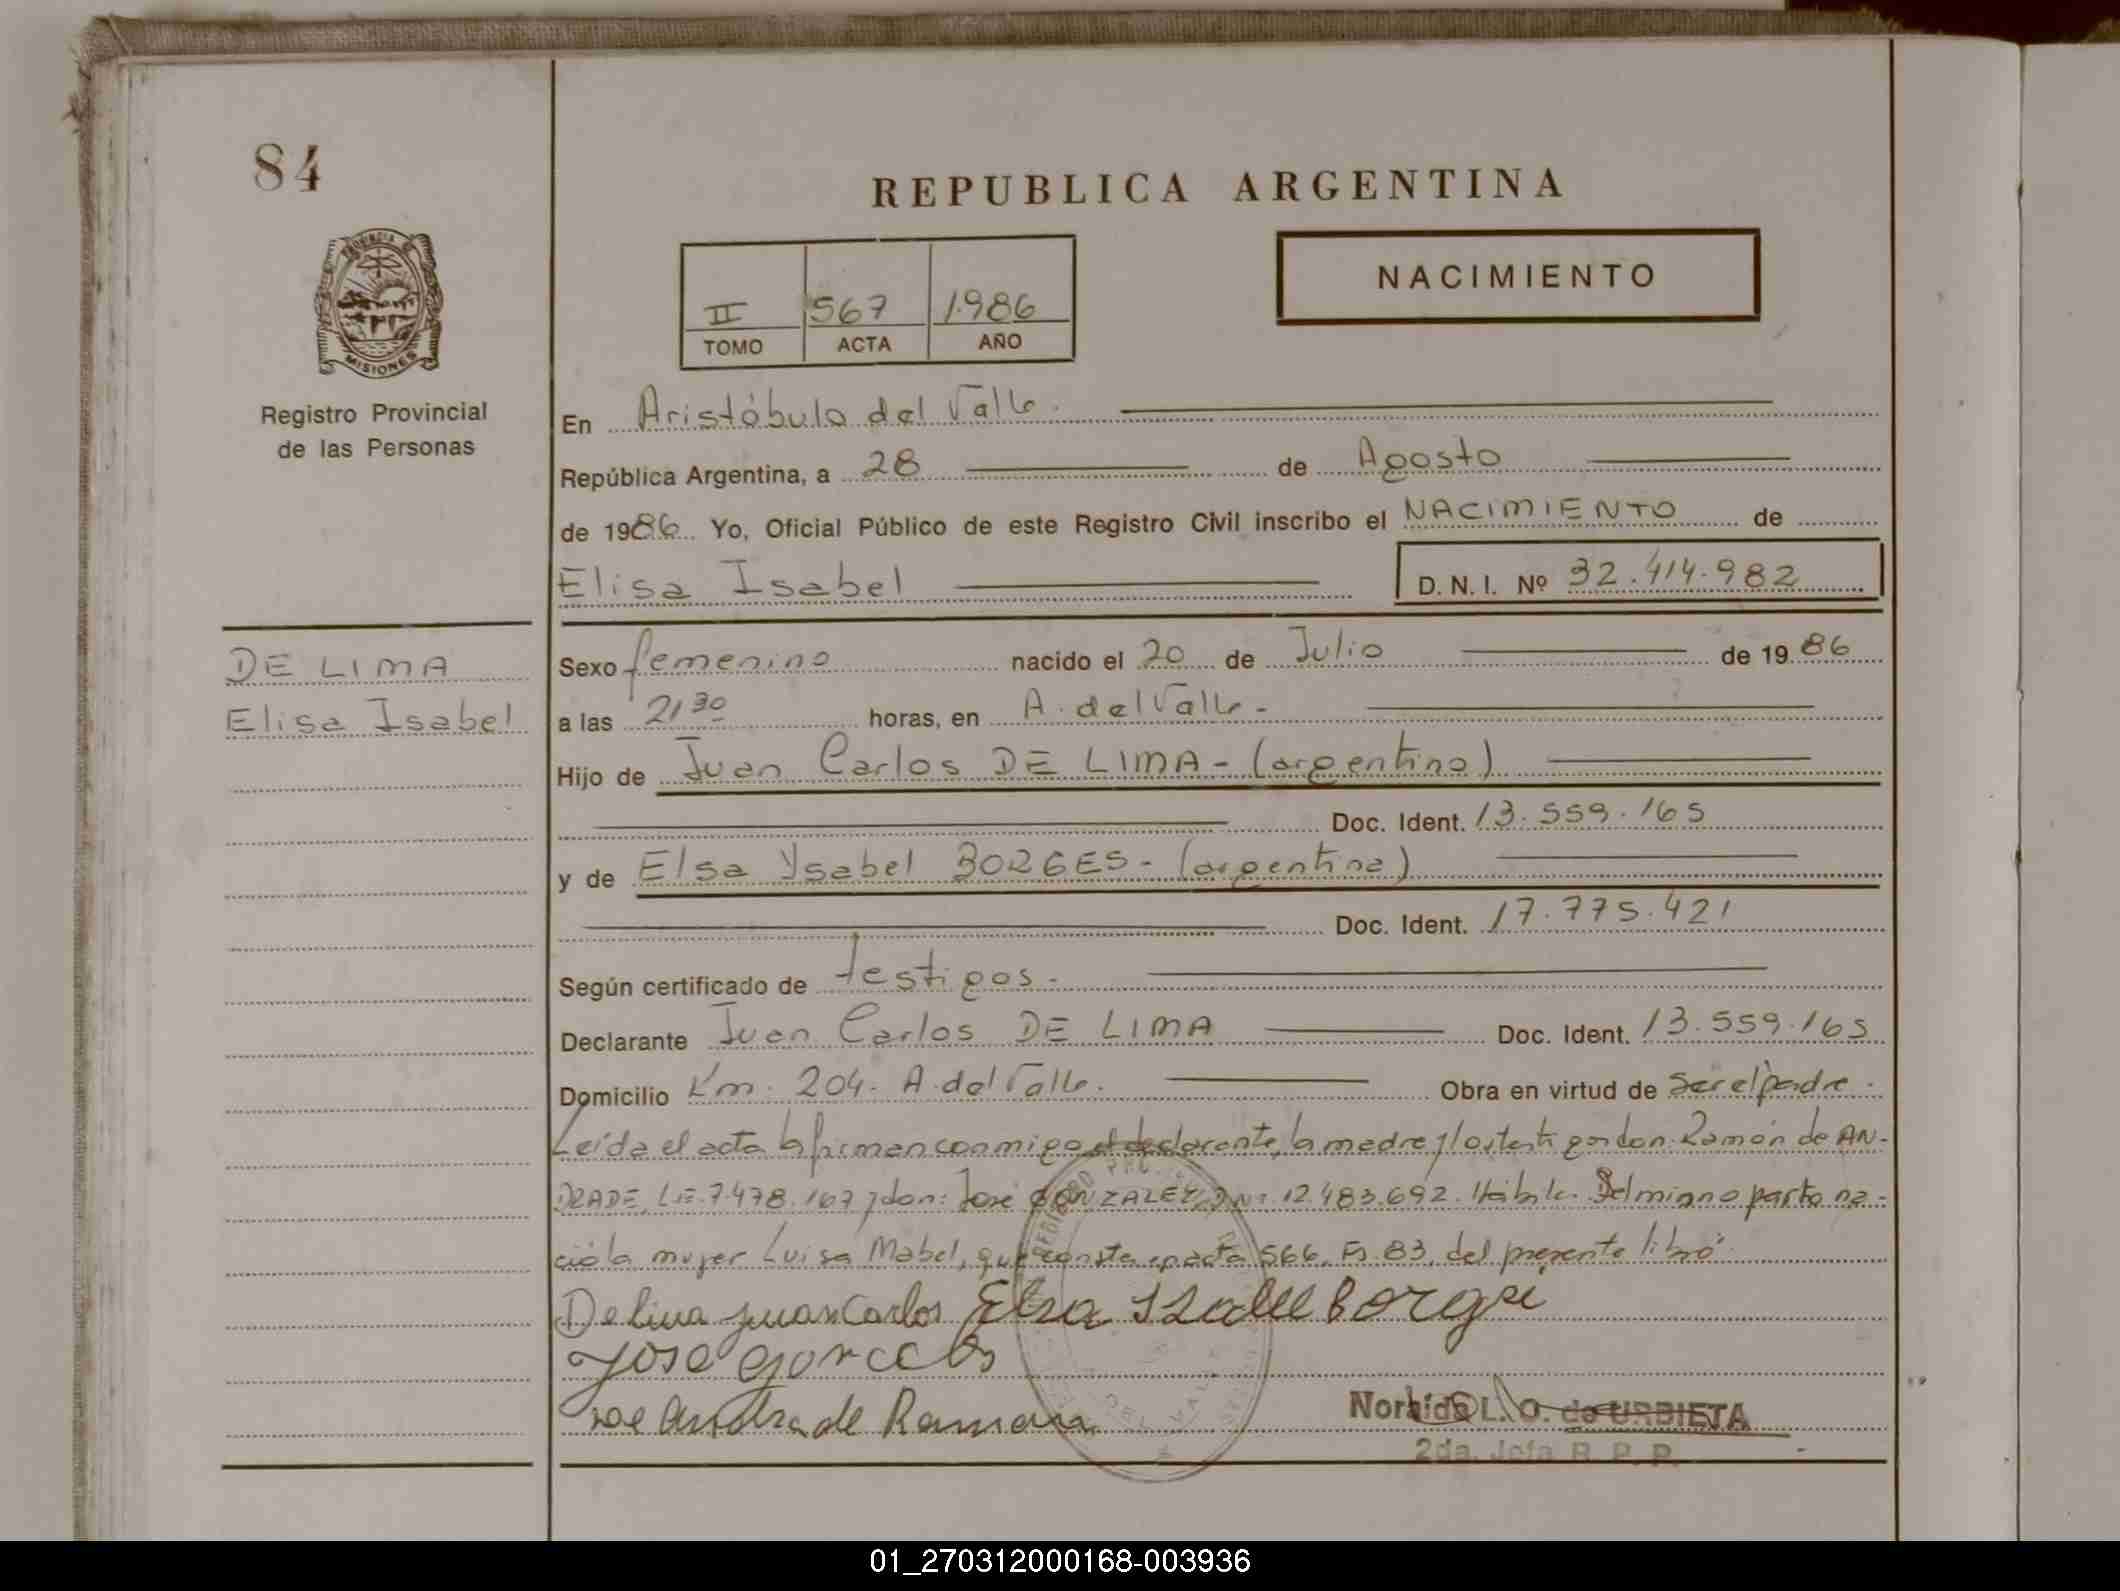 84
REPUBLICA ARGENTINA
PROVINCIA DE
MISIONES
Registro Provincial
de las Personas
NACIMIENTO
II 567 1.986
TOMO ACTA AÑO
En Aristóbulo del Valle.
República Argentina, a 28 de Agosto
de 1986 Yo, Oficial Público de este Registro Civil inscribo el NACIMIENTO de
Elisa Isabel D.N.I. Nº 32.414.982
DE LIMA
Elisa Isabel
Sexo femenino nacido el 20 de Julio de 1986
a las 21 30 horas, en A. del Valle -
Hijo de Juan Carlos DE LIMA - (argentino)
Doc. Ident. 13.559.165
y de Elsa Ysabel BORGES - (argentina)
Doc. Ident. 17.775.421
Según certificado de testigos -
Declarante Juan Carlos DE LIMA Doc. Ident. 13.559.165
Domicilio Km. 204. A. del Valle. Obra en virtud de ser el padre.
Leída el acta la firman conmigo el declarante, la madre y los testigos don: Ramón de AN-
DRADE, L.E. 7.478.167 y don: José GONZALEZ DNI 12.483.692. Hábiles. Del mismo parto na-
ció la mujer Luisa Mabel, que consta en acta 566, Fs. 83, del presente libro
De lima Juan Carlos Elsa Isabel Borges
Jose
de Ramon
Norbida L. O. de URBIETA
2da. Jefa R. P. P.
DEL VALLE
01_270312000168-003936